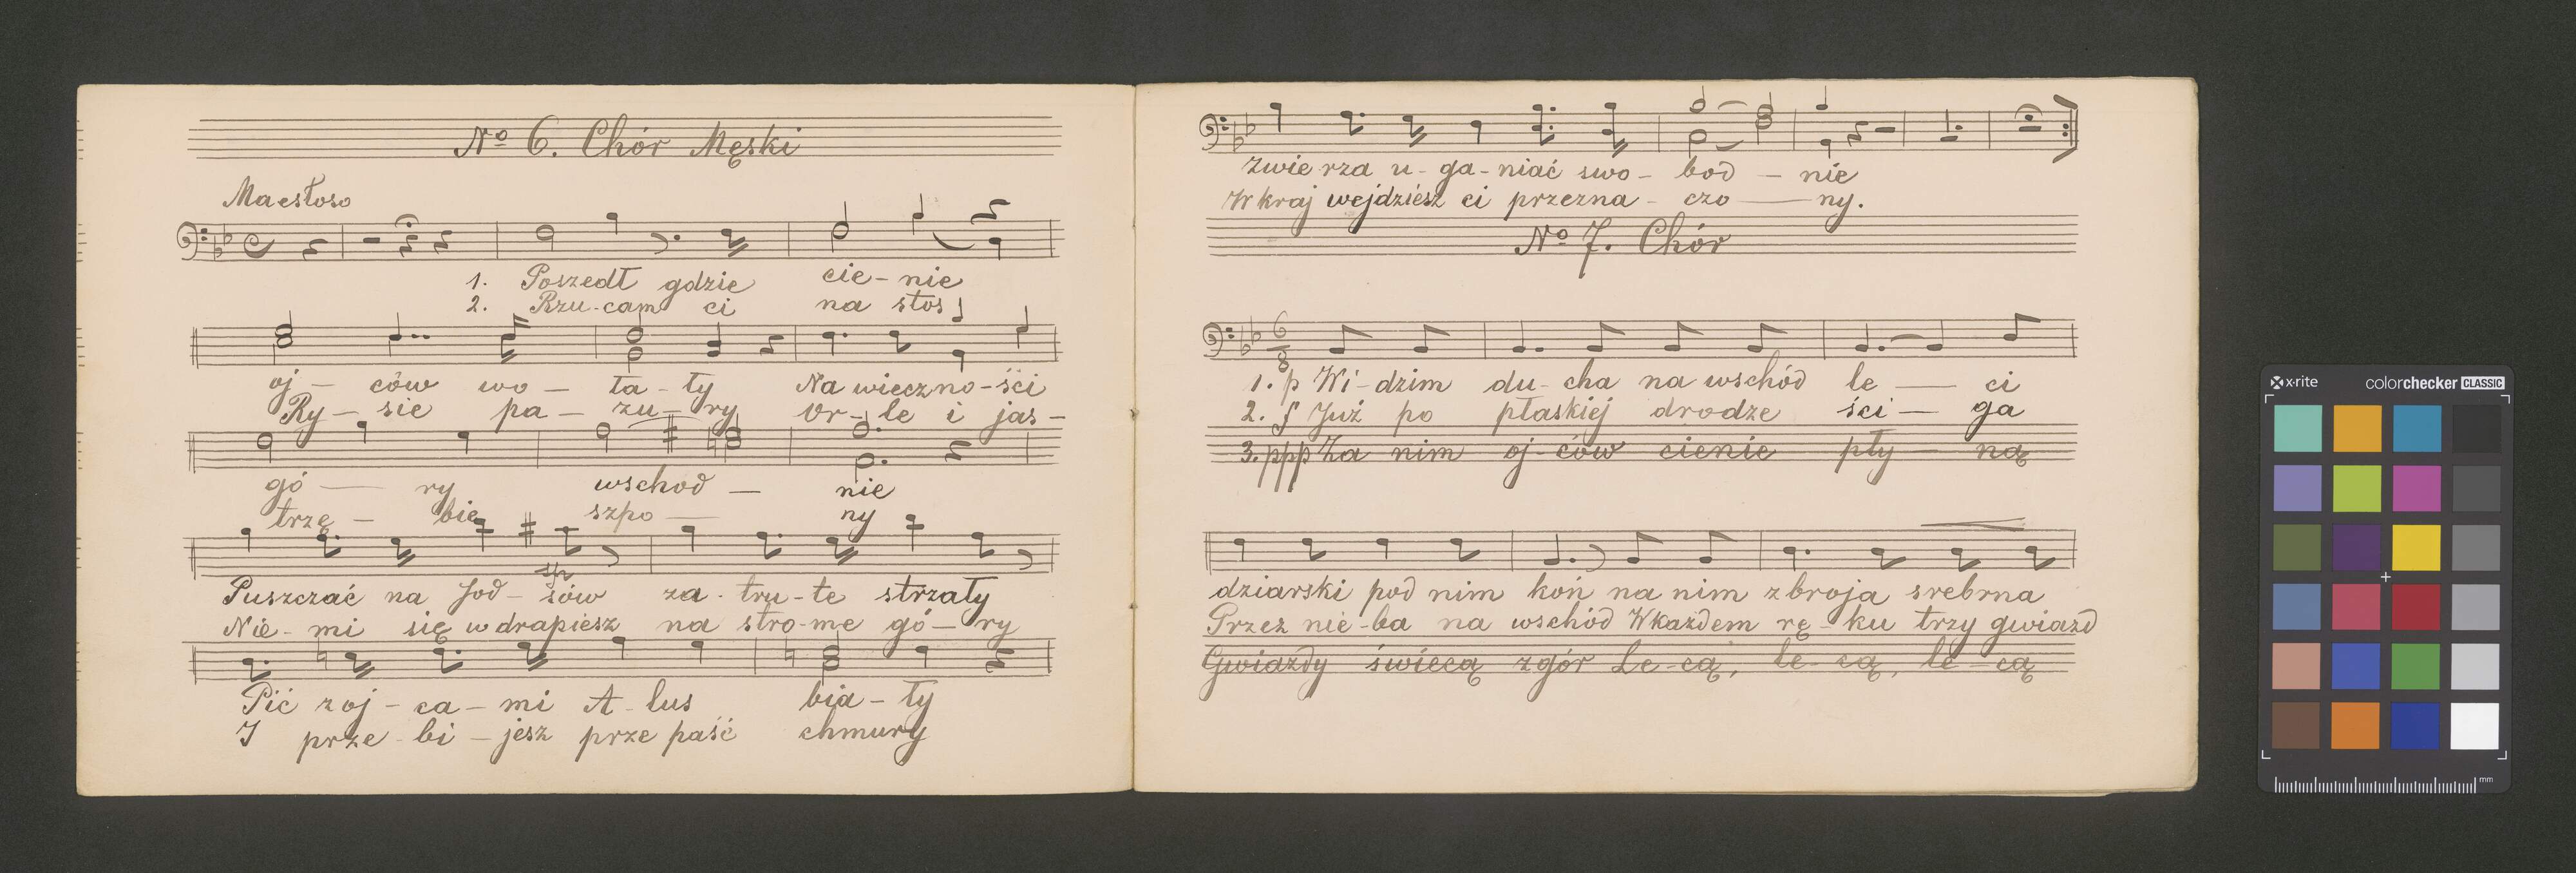 Nº 6. Chór Męski
Maestoso
1. Poszedł gdzie cie-nie
2. Rzu-cam ci na stos
oj - ców wo - ła - ły Na wieczno-ści
Ry - sie pa - zu - ry Or - le i jas -
gó - ry wschod - nie
trzę - bie szpo - ny
Puszczać na Jod - sów za - tru - te strzały
Nie - mi się wdrapiesz na stro-me gó - ry
Pić z oj - ca - mi A - lus bia - ły
I prze - bi - jesz prze paść chmury
zwie rza u - ga - niać swo - bod - nie
W kraj wejdziesz ci przezna - czo - ny.
Nº 7. Chór
6
8
1. p Wi - dzim du - cha na wschód le - ci
2. f Już po płaskiej drodze ści - ga
3. ppp Za nim oj - ców cienie pły - ną
dziarski pod nim koń na nim zbroja srebrna
Przez nie - ba na wschód W każdem rę - ku trzy gwiazd
Gwiazdy świecą z gór Le - cą, le - cą, le - cą
x-rite colorchecker CLASSIC
mm